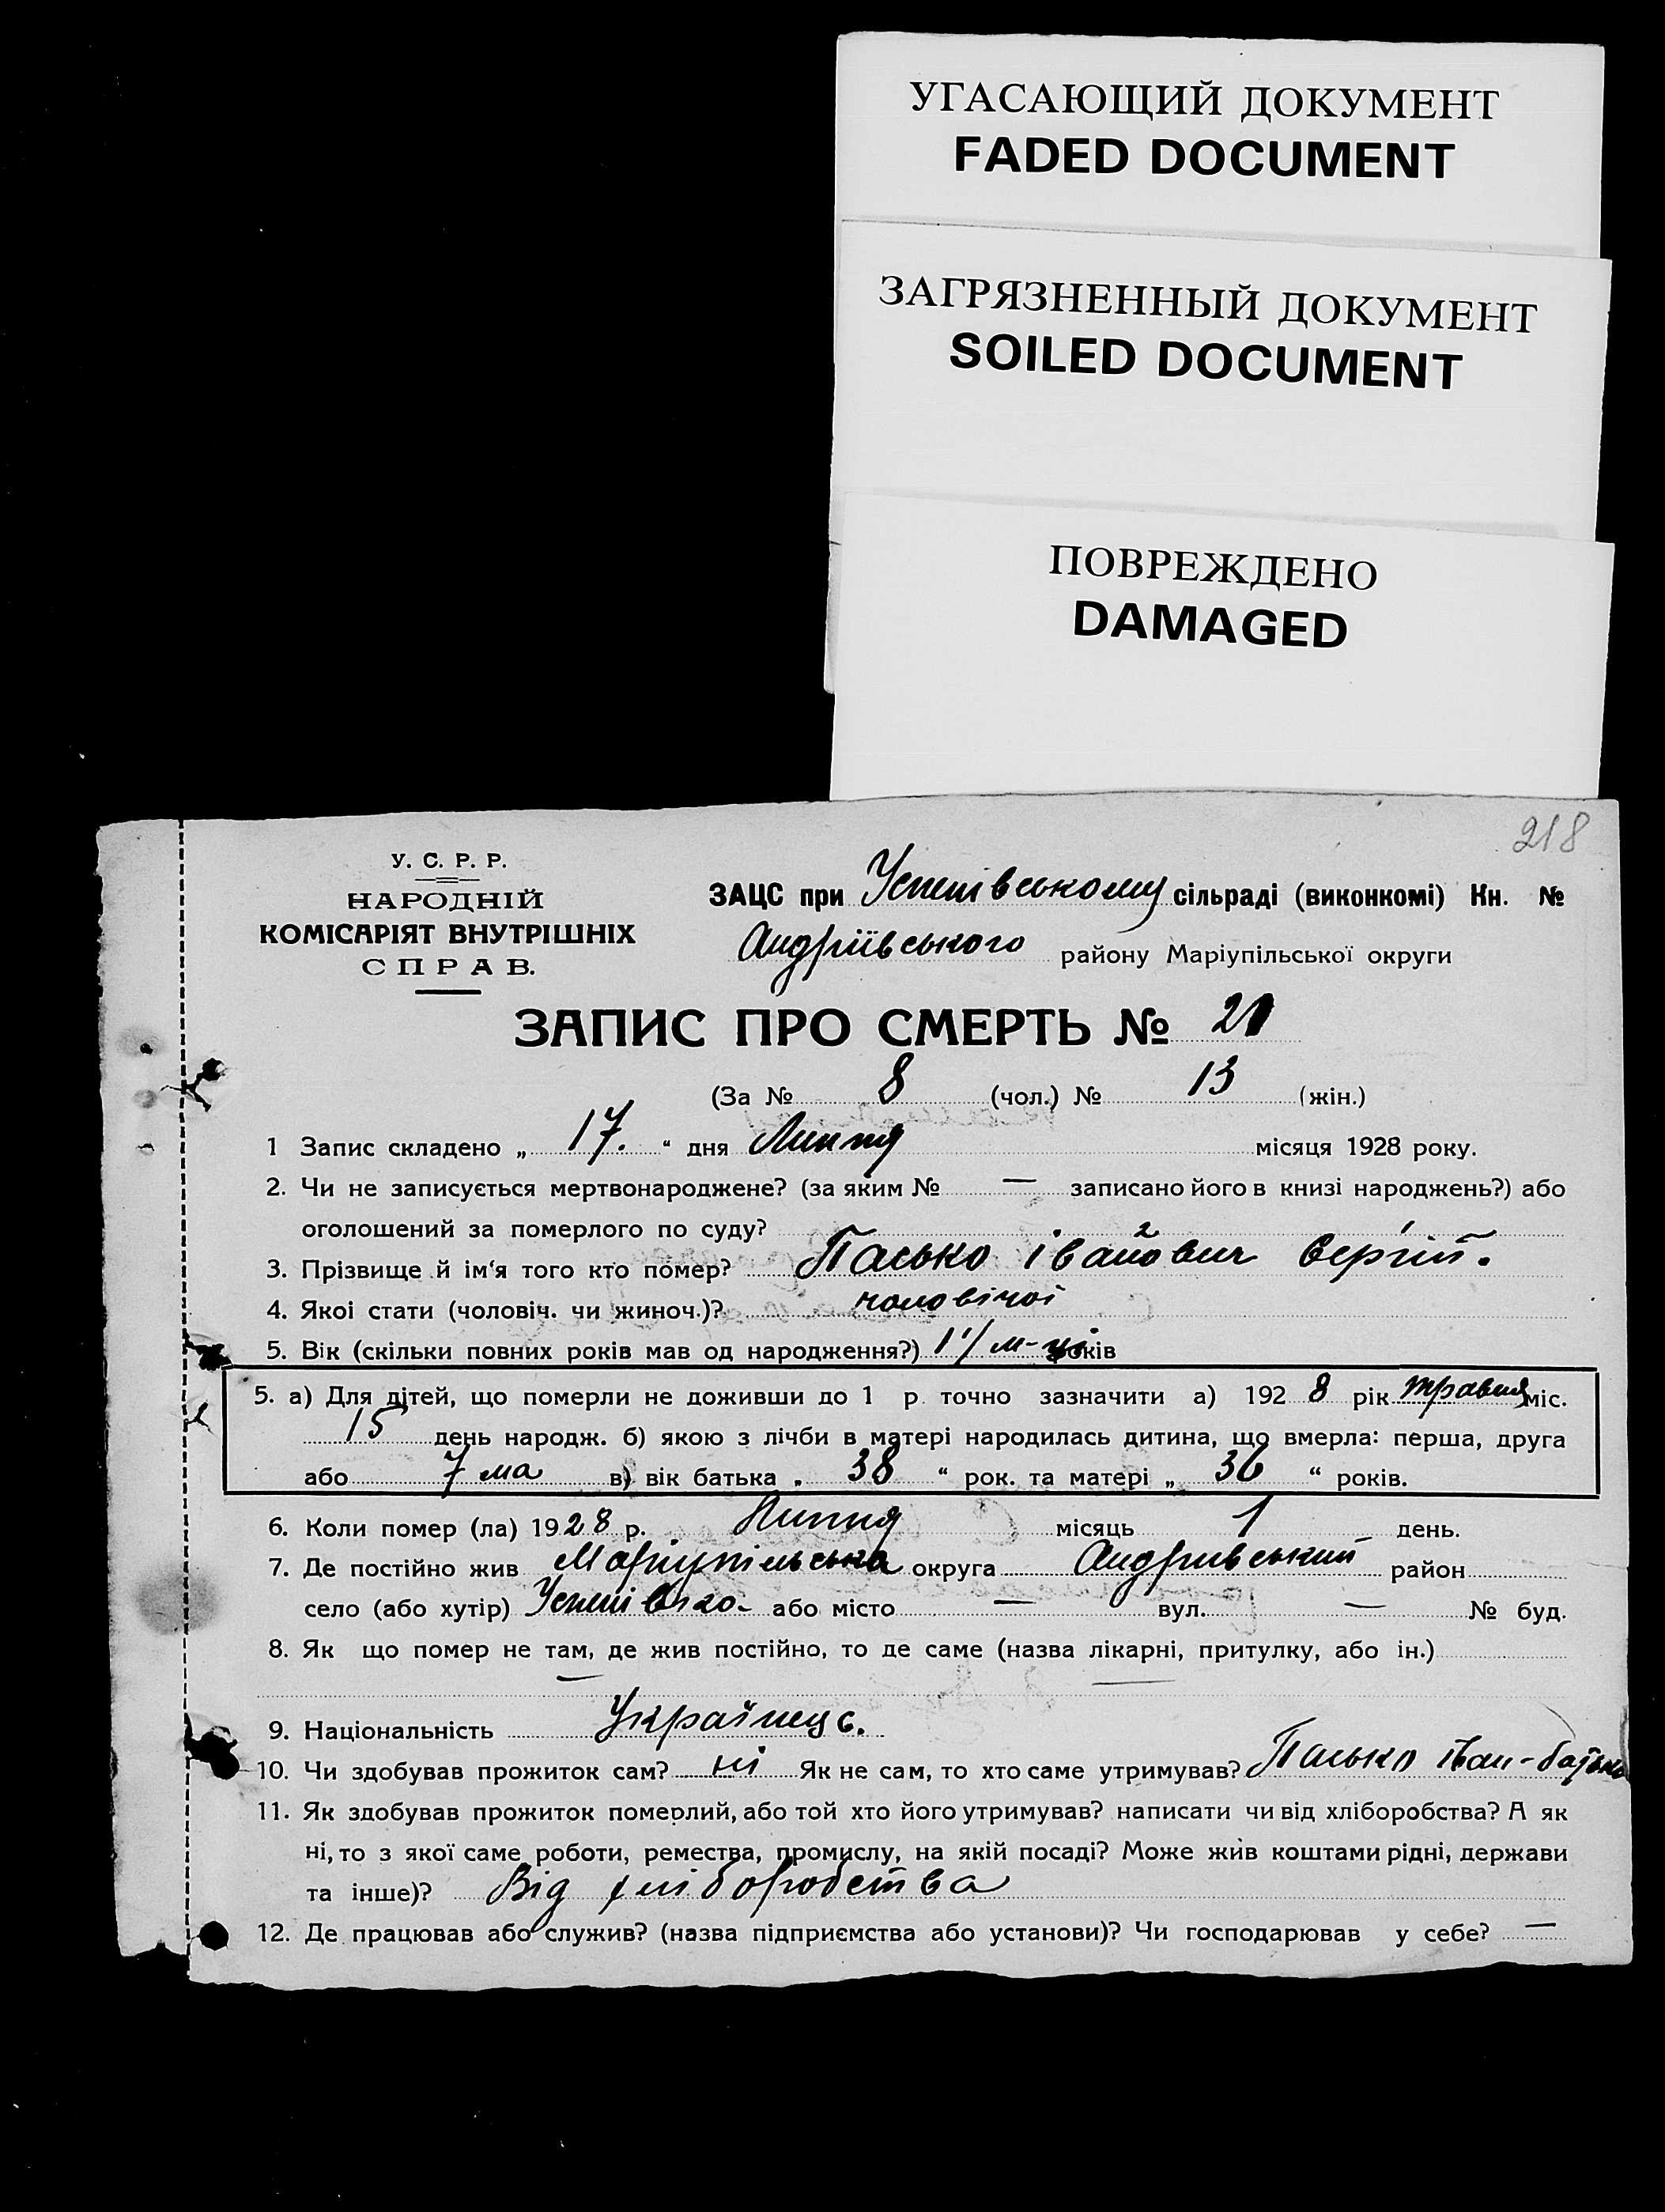 УГАСАЮЩИЙ ДОКУМЕНТ
FADED DOCUMENT
ЗАГРЯЗНЕННЫЙ ДОКУМЕНТ
SOILED DOCUMENT
ПОВРЕЖДЕНО
DAMAGED
218
У. С. Р. Р.
НАРОДНІЙ
КОМІСАРІЯТ ВНУТРІШНІХ
СПРАВ.
ЗАЦС при сільраді (виконкомі) Кн. №
Андріївського району Маріупільської округи
ЗАПИС ПРО СМЕРТЬ № 21
(За № 8 (чол.) № 13 (жін.)
1 Запис складено „ 17. “ дня Липня місяця 1928 року.
2. Чи не записується мертвонароджене? (за яким № — записано його в книзі народжень?) або
оголошений за померлого по суду?
3. Прізвище й ім'я того кто помер? Пасько Іванович Сергій.
4. Якоі стати (чоловіч. чи жиноч.)? чоловічоі
5. Вік (скільки повних років мав од народження?) 1 1/ м-ці років
5. а) Для дітей, що померли не доживши до 1 р. точно зазначити а) 192 8 рік травня міс.
15 день народж. б) якою з лічби в матері народилась дитина, що вмерла: перша, друга
або 7 ма в) вік батька „ 38 “ рок. та матері „ 36 “ років.
6. Коли помер (ла) 1928 р. Липня місяць 1 день.
7. Де постійно жив Маріупільська округа Андрівський район
село (або хутір) або місто — вул. — № буд.
8. Як що помер не там, де жив постійно, то де саме (назва лікарні, притулку, або ін.)
— —
9. Національність Українець.
10. Чи здобував прожиток сам? ні Як не сам, то хто саме утримував? Пасько Іван - батько
11. Як здобував прожиток померлий, або той хто його утримував? написати чи від хліборобства? А як
ні, то з якої саме роботи, ремества, промислу, на якій посаді? Може жив коштами рідні, держави
та інше)? Від хліборобства
12. Де працював або служив? (назва підприємства або установи)? Чи господарював у себе? —